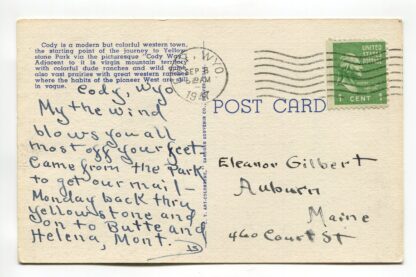 Cody is a modern but colorful western town,
the starting point of the journey to Yellow-
stone Park via the picturesque "Cody Way."
Adjacent to it is virgin mountain territory
with colorful dude ranches and wild game,
also vast prairies with great western ranches
where the habits of the pioneer West are still
in vogue.
Cody, Wyo
My the wind
blows you all
most off your feet.
Came from the Park
to get our mail-
Monday back thru
Yellowstone and
on to Butte and
Helena, Mont.
WYO
SEP 3
AM
POST CARD
UNITED STATES
POSTAGE
1 CENT 1
Eleanor Gilbert
Auburn
Maine
460 Court St